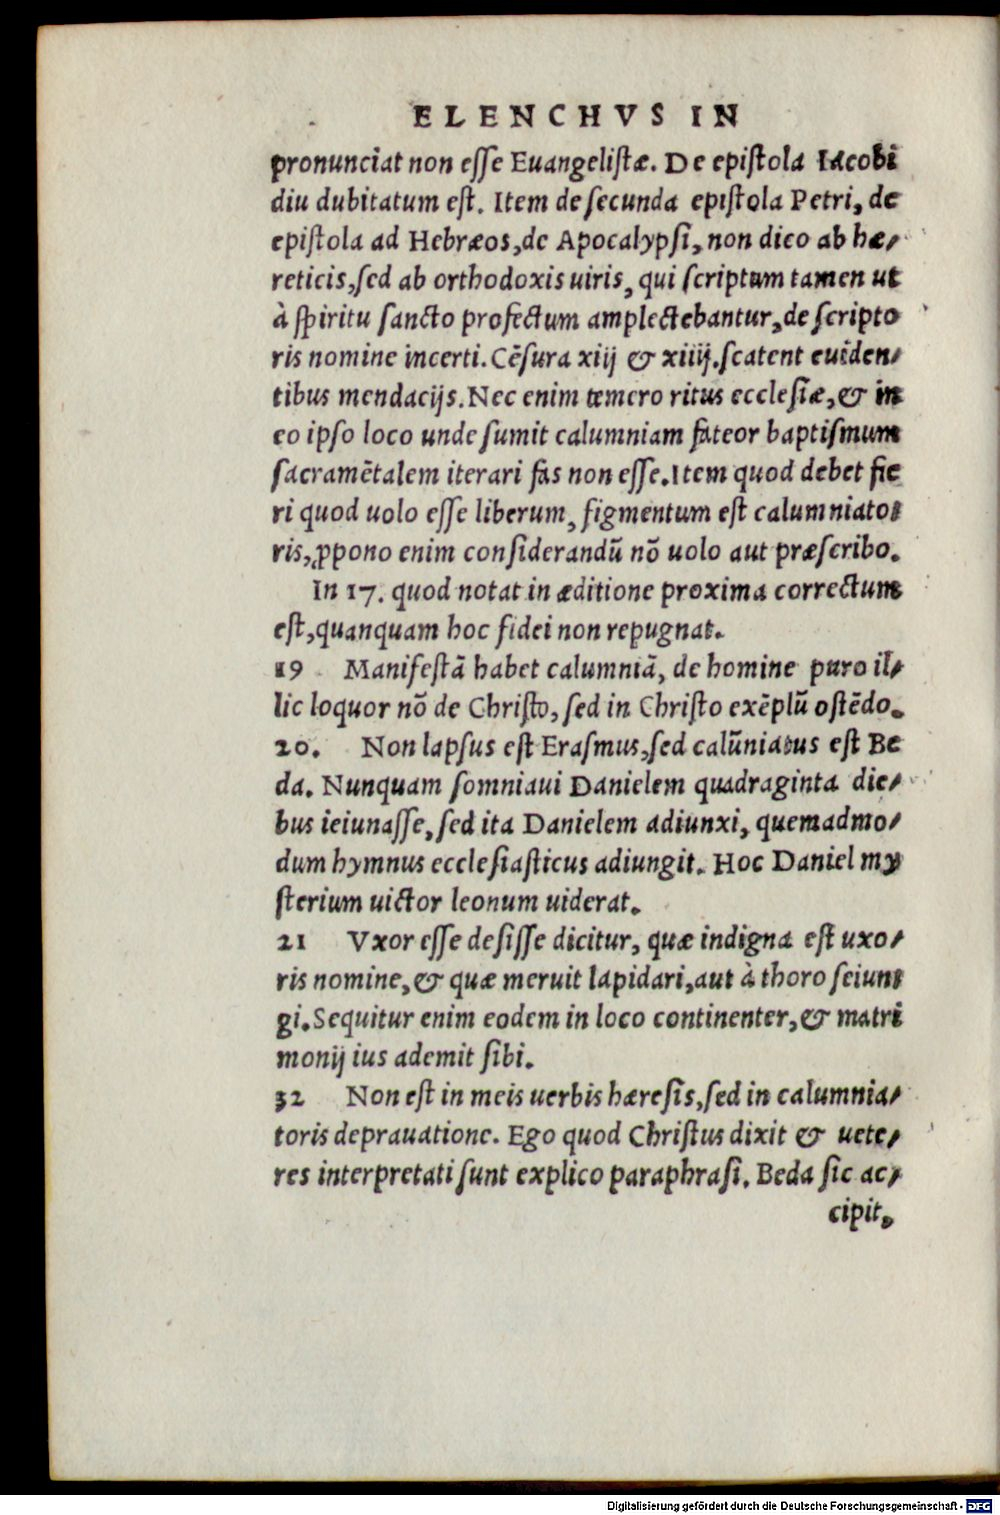 ELENCHVS IN
pronunciat non eſſe Euangeliſtæ. De epiſtola Iacobi
diu dubitatum eſt. Item de ſecunda epiſtola Petri, de
epiſtola ad Hebræos, de Apocalypſi, non dico ab hæ⸗
reticis, ſed ab orthodoxis uiris, qui ſcriptum tamen ut
à ſpiritu ſancto profectum amplectebantur, de ſcripto
ris nomine incerti. Cēſura xiij & xiiij. ſcatent euiden⸗
tibus mendacijs. Nec enim temero ritus eccleſiæ, & in
eo ipſo loco unde ſumit calumniam fateor baptiſmum
ſacramētalem iterari fas non eſſe. Item quod debet fie
ri quod uolo eſſe liberum, figmentum eſt calumniato⸗
ris, ꝓpono enim conſiderandū nō uolo aut præſcribo.
In 17. quod notat in æditione proxima correctum
eſt, quanquam hoc fidei non repugnat.
19 Manifeſtā habet calumniā, de homine puro il⸗
lic loquor nō de Chriſto, ſed in Chriſto exēplū oſtēdo.
20. Non lapſus eſt Eraſmus, ſed calūniatus eſt Be
da. Nunquam ſomniaui Danielem quadraginta die⸗
bus ieiunaſſe, ſed ita Danielem adiunxi, quemadmo⸗
dum hymnus eccleſiaſticus adiungit. Hoc Daniel my
ſterium uictor leonum uiderat.
21 Vxor eſſe deſiſſe dicitur, quæ indigna eſt uxo⸗
ris nomine, & quæ meruit lapidari, aut à thoro ſeiun⸗
gi. Sequitur enim eodem in loco continenter, & matri
monij ius ademit ſibi.
32 Non eſt in meis uerbis hæreſis, ſed in calumnia⸗
toris deprauatione. Ego quod Chriſtus dixit & uete⸗
res interpretati ſunt explico paraphraſi. Beda ſic ac⸗
cipit,
Digitalisierung gefördert durch die Deutsche Forschungsgemeinschaft - DFG